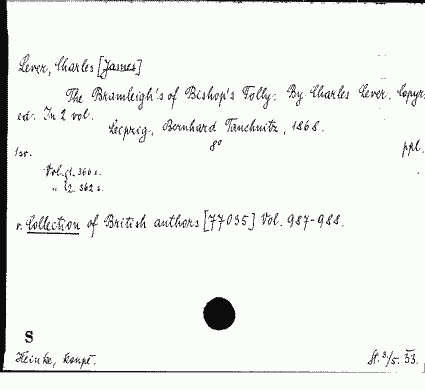 Lever, Charles [James]
The Bramleigh's of Bishop's Folly. By Charles Lever. Copyr.
ed. In 2 vol.
Leipzig, Bernhard Tauchnitz, 1868.
1 v. 8° ppl.
Vol. 1. 366 s.
" 2. 362 s.
v. Collection of British authors [77035] Vol. 987-988.
S
Heinke, kompt. St. 3/5. 33.